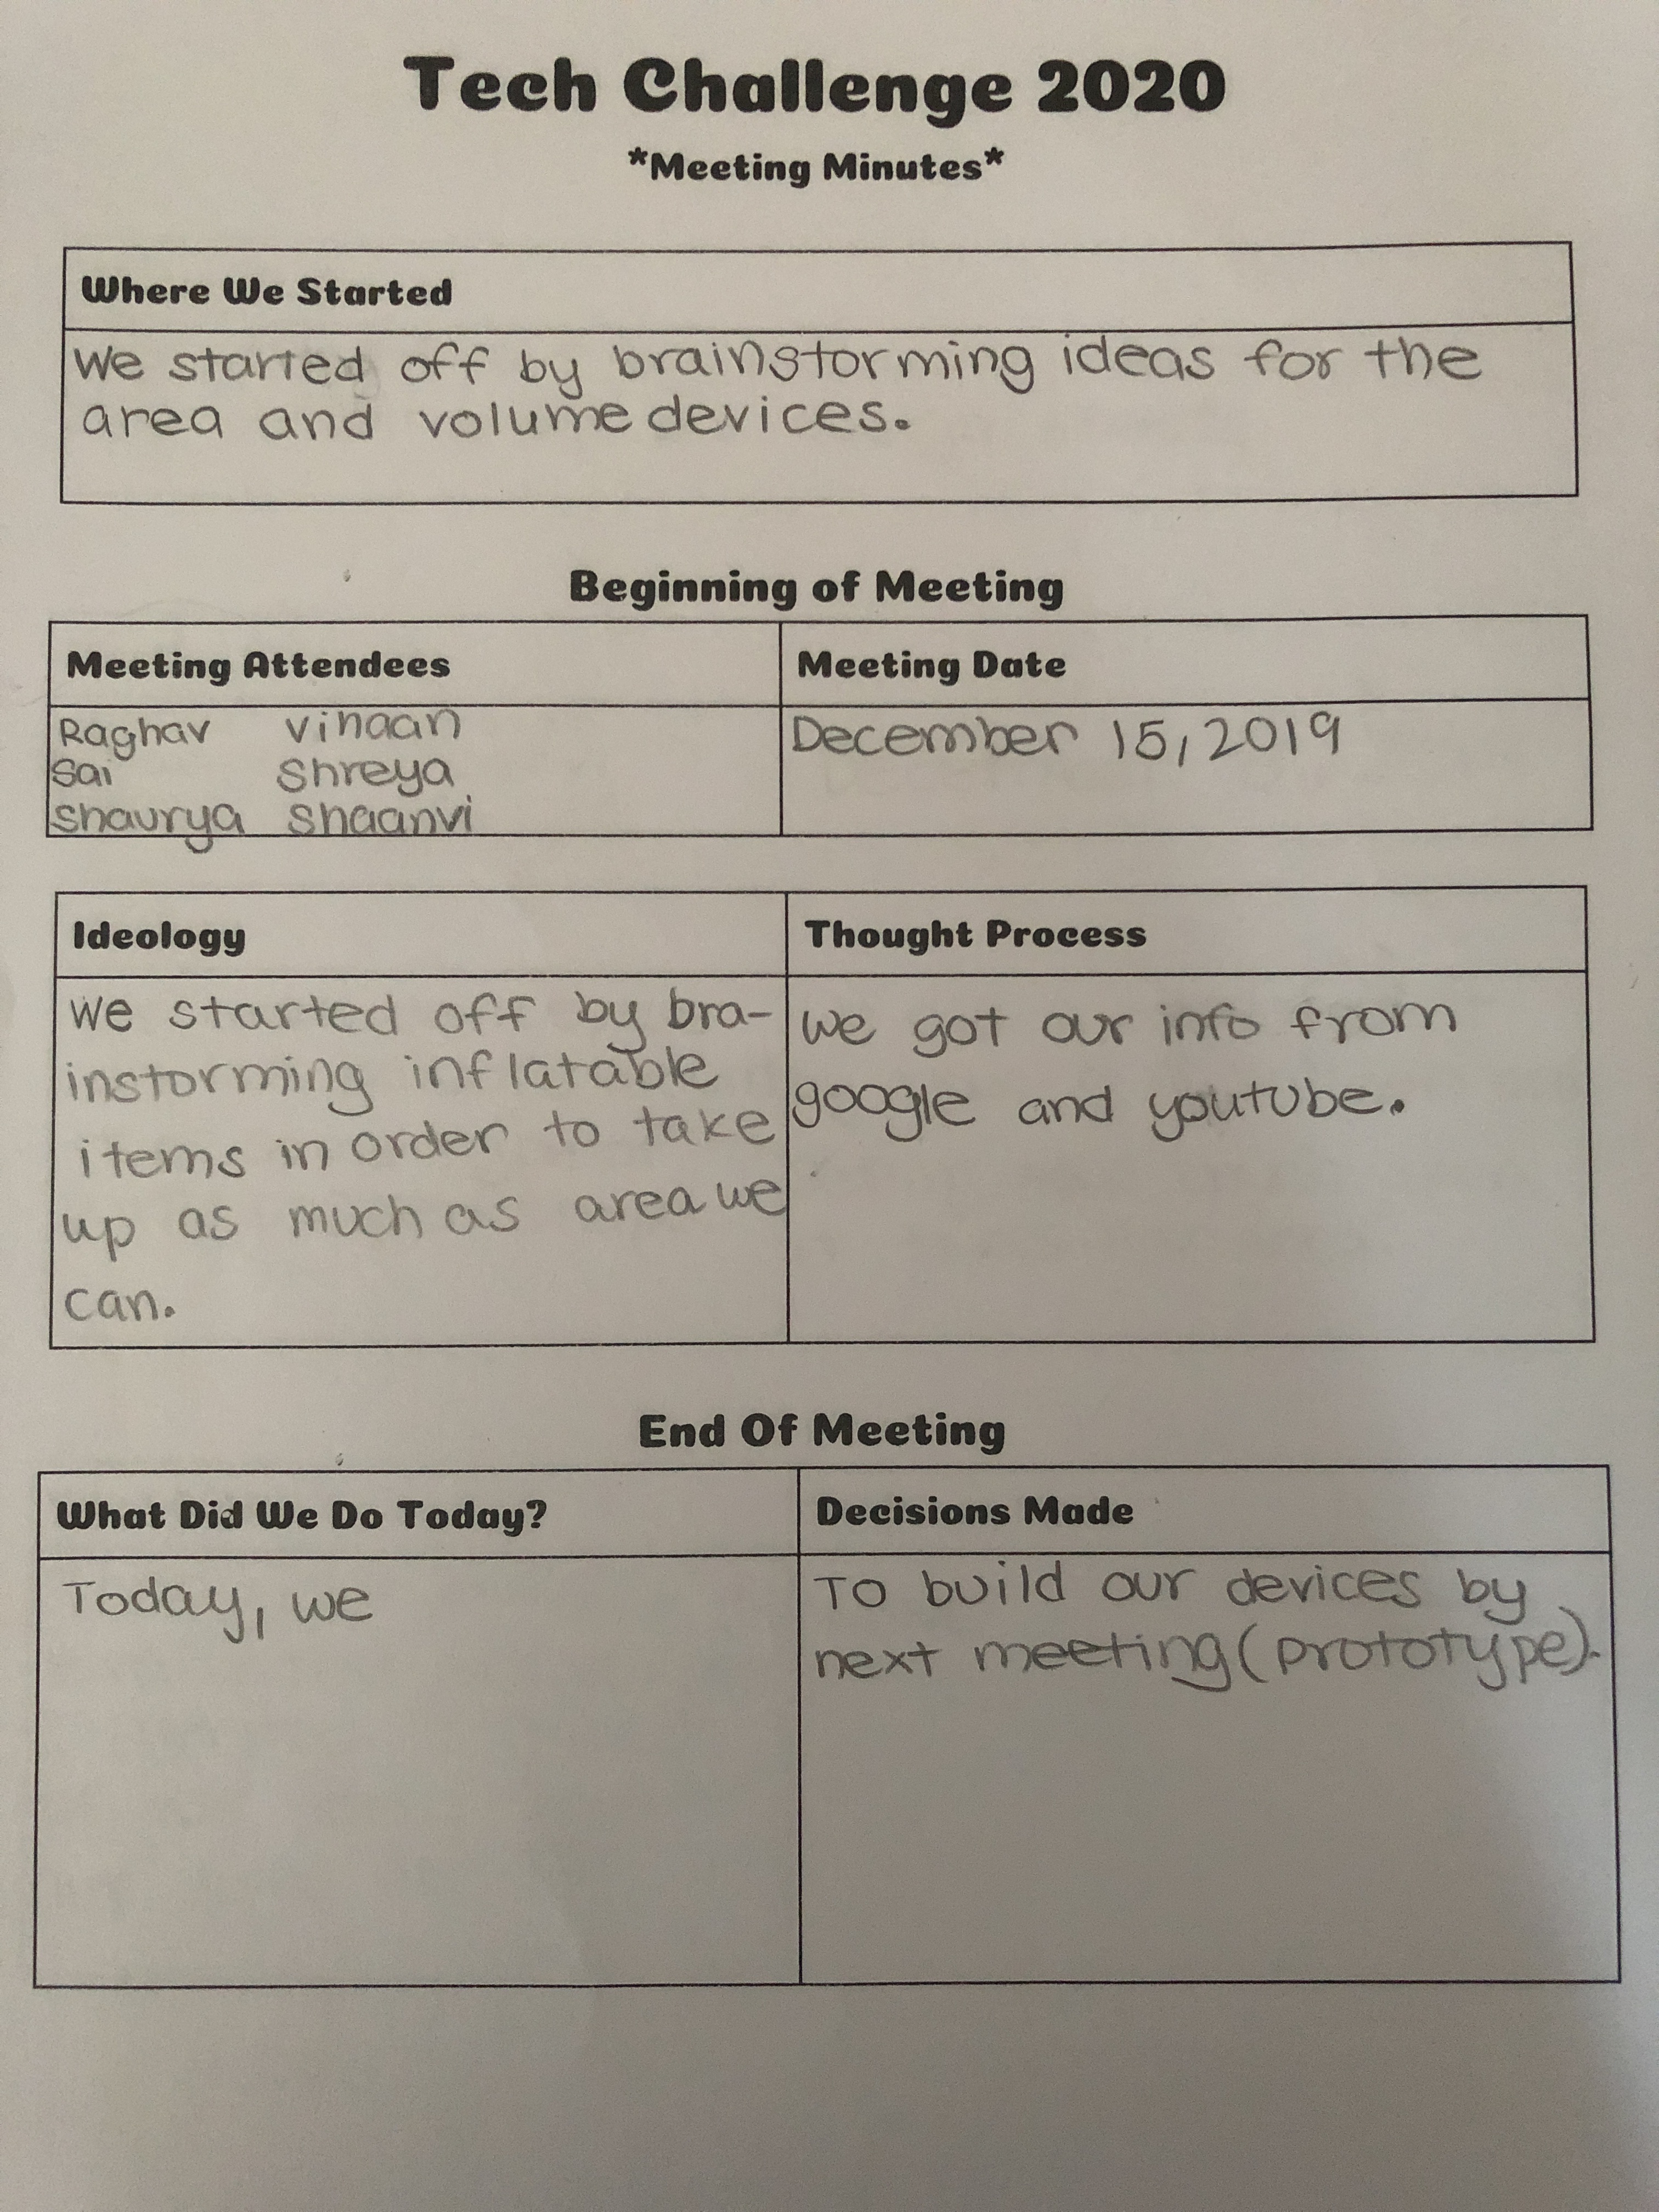 Tech Challenge 2020
*Meeting Minutes*
Where We Started
We started off by brainstorming ideas for the
area and volume devices.
Beginning of Meeting
Meeting Attendees
Meeting Date
Raghav vinaan
Sai shreya
shaurya shaanvi
December 15, 2019
Ideology
Thought Process
we started off by bra-
instorming inflatable
items in order to take
up as much as area we
can.
we got our info from
google and youtube.
End Of Meeting
What Did We Do Today?
Decisions Made
Today, we
To build our devices by
next meeting (prototype).